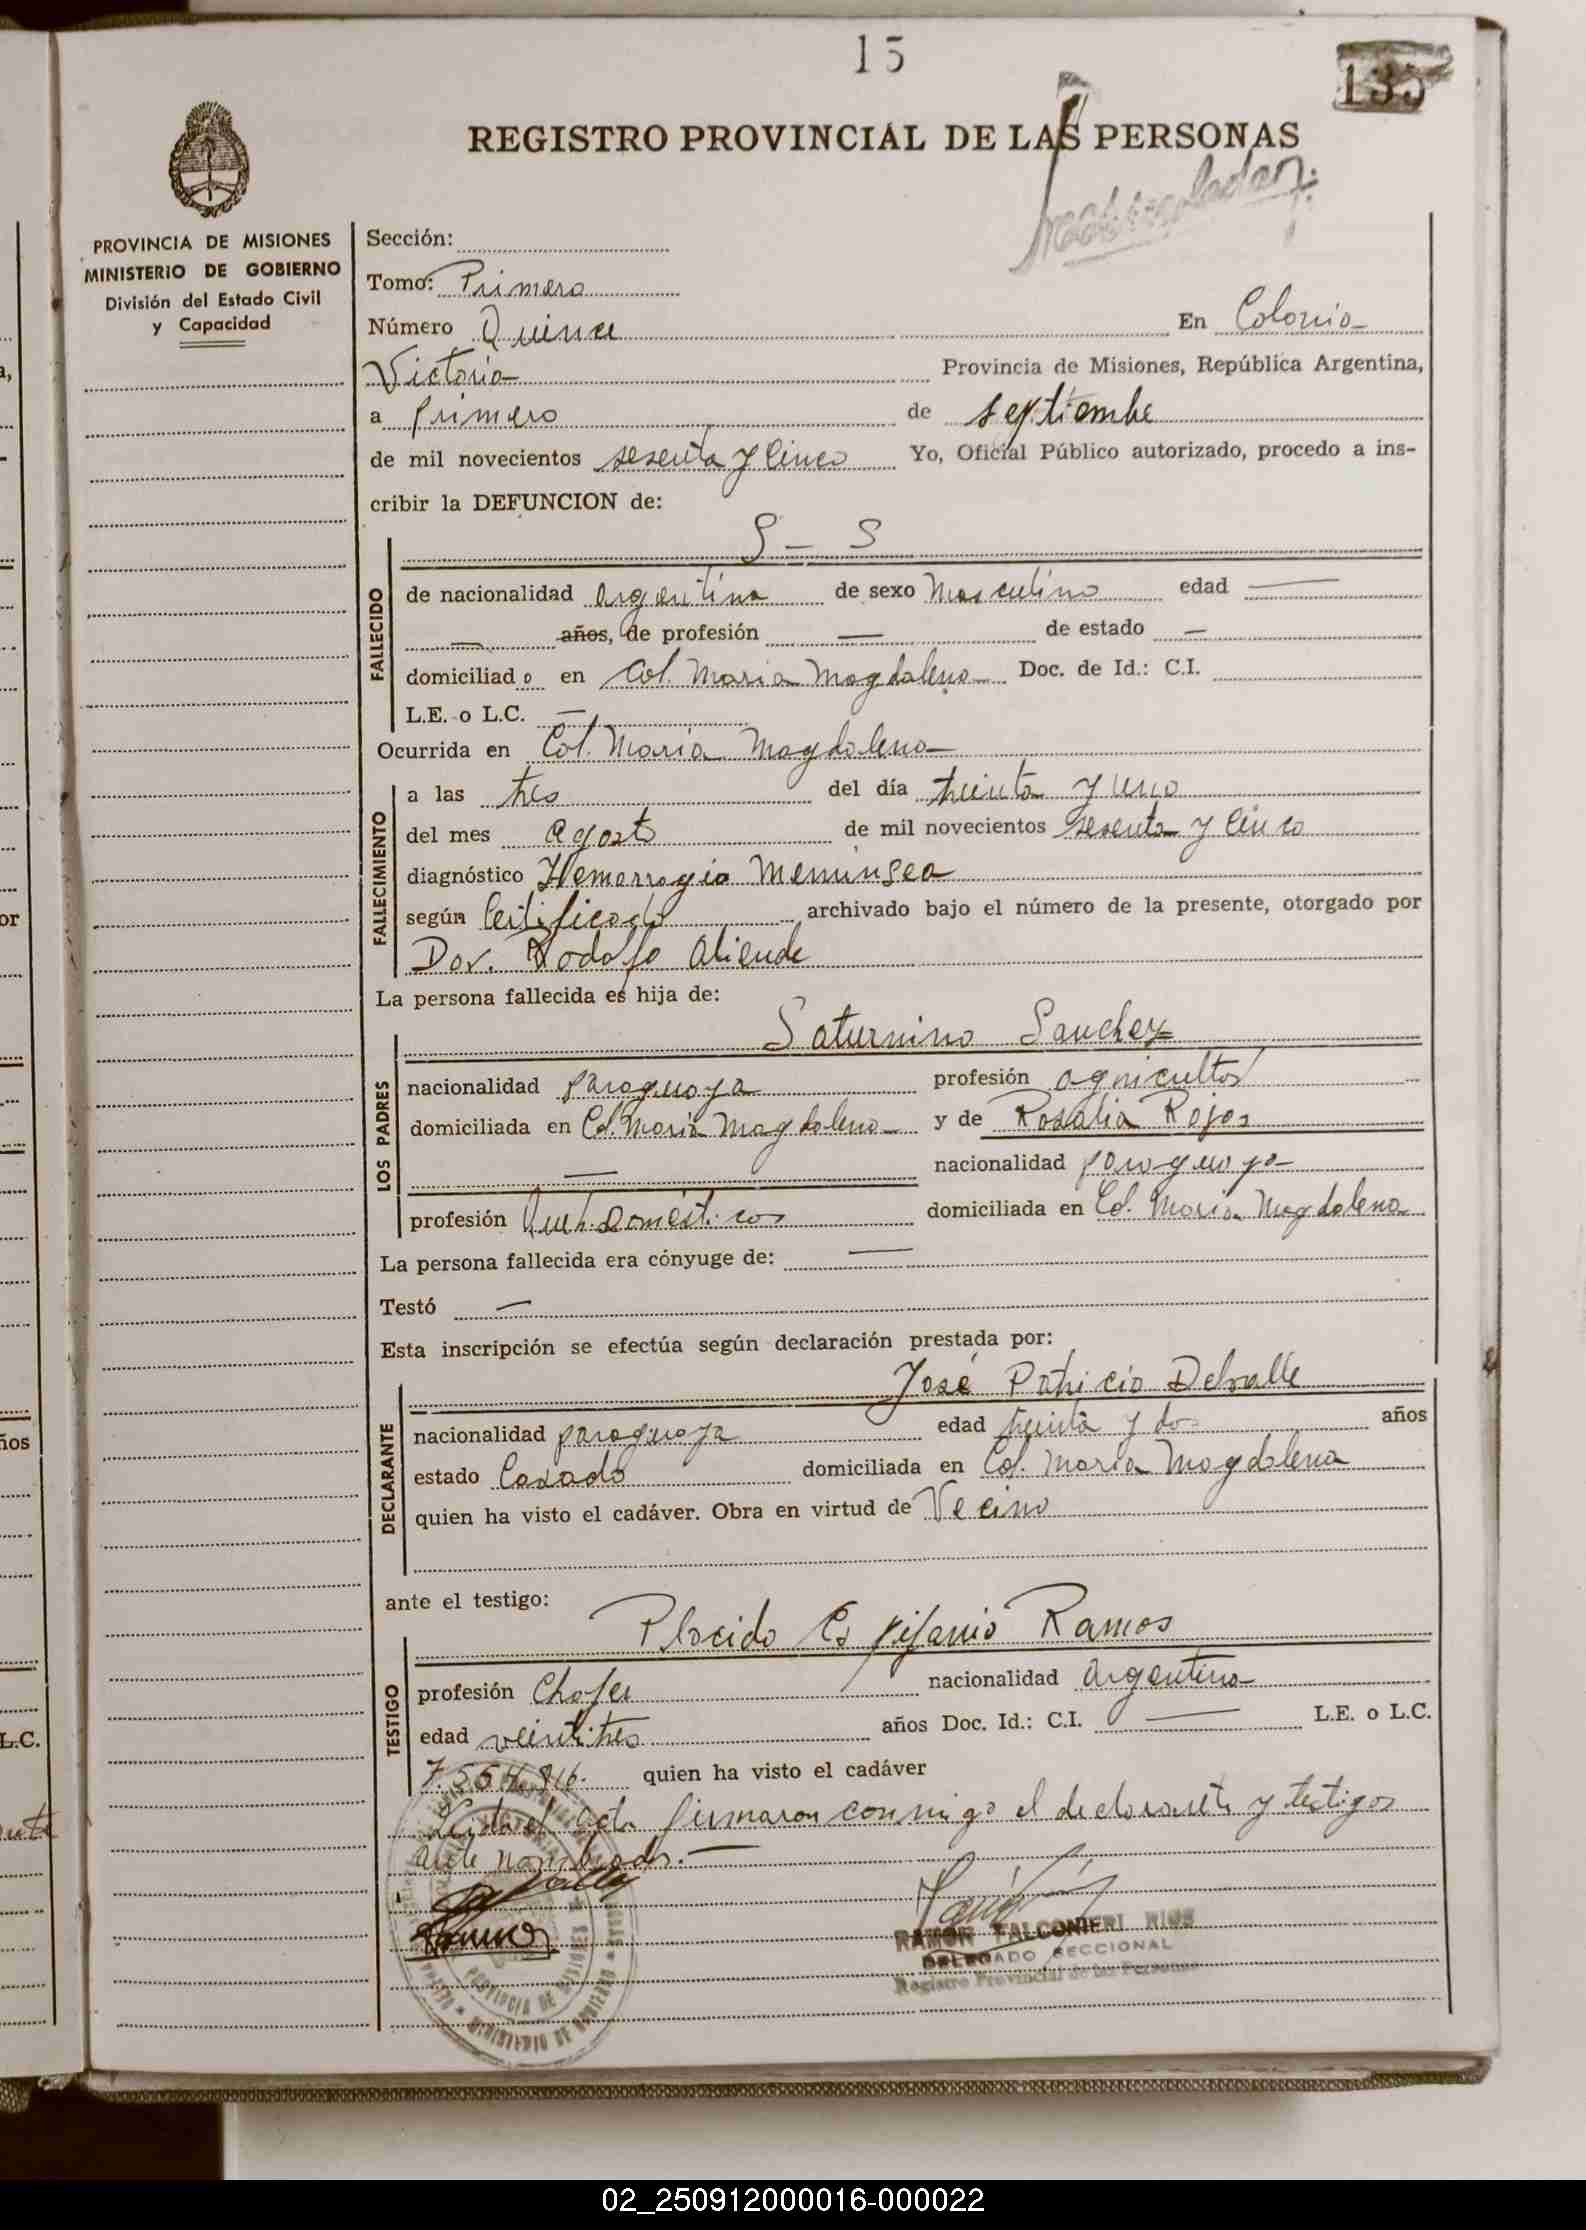 15
135
REGISTRO PROVINCIAL DE LAS PERSONAS
PROVINCIA DE MISIONES
MINISTERIO DE GOBIERNO
División del Estado Civil
y Capacidad
Sección:
Tomo: Primero
Número Quince En Colonia
Victoria Provincia de Misiones, República Argentina,
a primero de septiembre
de mil novecientos sesenta y cinco Yo, Oficial Público autorizado, procedo a ins-
cribir la DEFUNCION de:
S - S
FALLECIDO
de nacionalidad argentina de sexo masculino edad —
— años, de profesión — de estado —
domiciliado en Col. Maria Magdalena Doc. de Id.: C.I.
L.E. o L.C. —
Ocurrida en Col. Maria Magdalena
FALLECIMIENTO
a las tres del día treinta y uno
del mes agosto de mil novecientos sesenta y cinco
diagnóstico Hemorragia Meninsea
según Certificado archivado bajo el número de la presente, otorgado por
Dor. Rodolfo Aliende
La persona fallecida es hija de:
Saturnino Sanchez
LOS PADRES
nacionalidad paraguaya profesión agricultor
domiciliada en Col. Maria Magdalena y de Rosalia Rojas
— nacionalidad paraguaya
profesión Queh. Domésticos domiciliada en Col. Maria Magdalena
La persona fallecida era cónyuge de: —
Testó —
Esta inscripción se efectúa según declaración prestada por:
José Patricio Delvalle
DECLARANTE
nacionalidad paraguaya edad treinta y dos años
estado Casado domiciliada en Col. Maria Magdalena
quien ha visto el cadáver. Obra en virtud de Vecino
ante el testigo:
Placido Epifanio Ramos
TESTIGO
profesión Chofer nacionalidad Argentina
edad veintitres años Doc. Id.: C.I. — L.E. o L.C.
7.554.816. quien ha visto el cadáver
Leida el acta firmaron conmigo el declarante y testigos
ante nombrados.—
Ramos
RAMON FALCONIERI RIOS
DELEGADO SECCIONAL
Registro Provincial de las Personas
PROVINCIA DE MISIONES
MINISTERIO DE GOBIERNO
años
L.C.
02_250912000016-000022